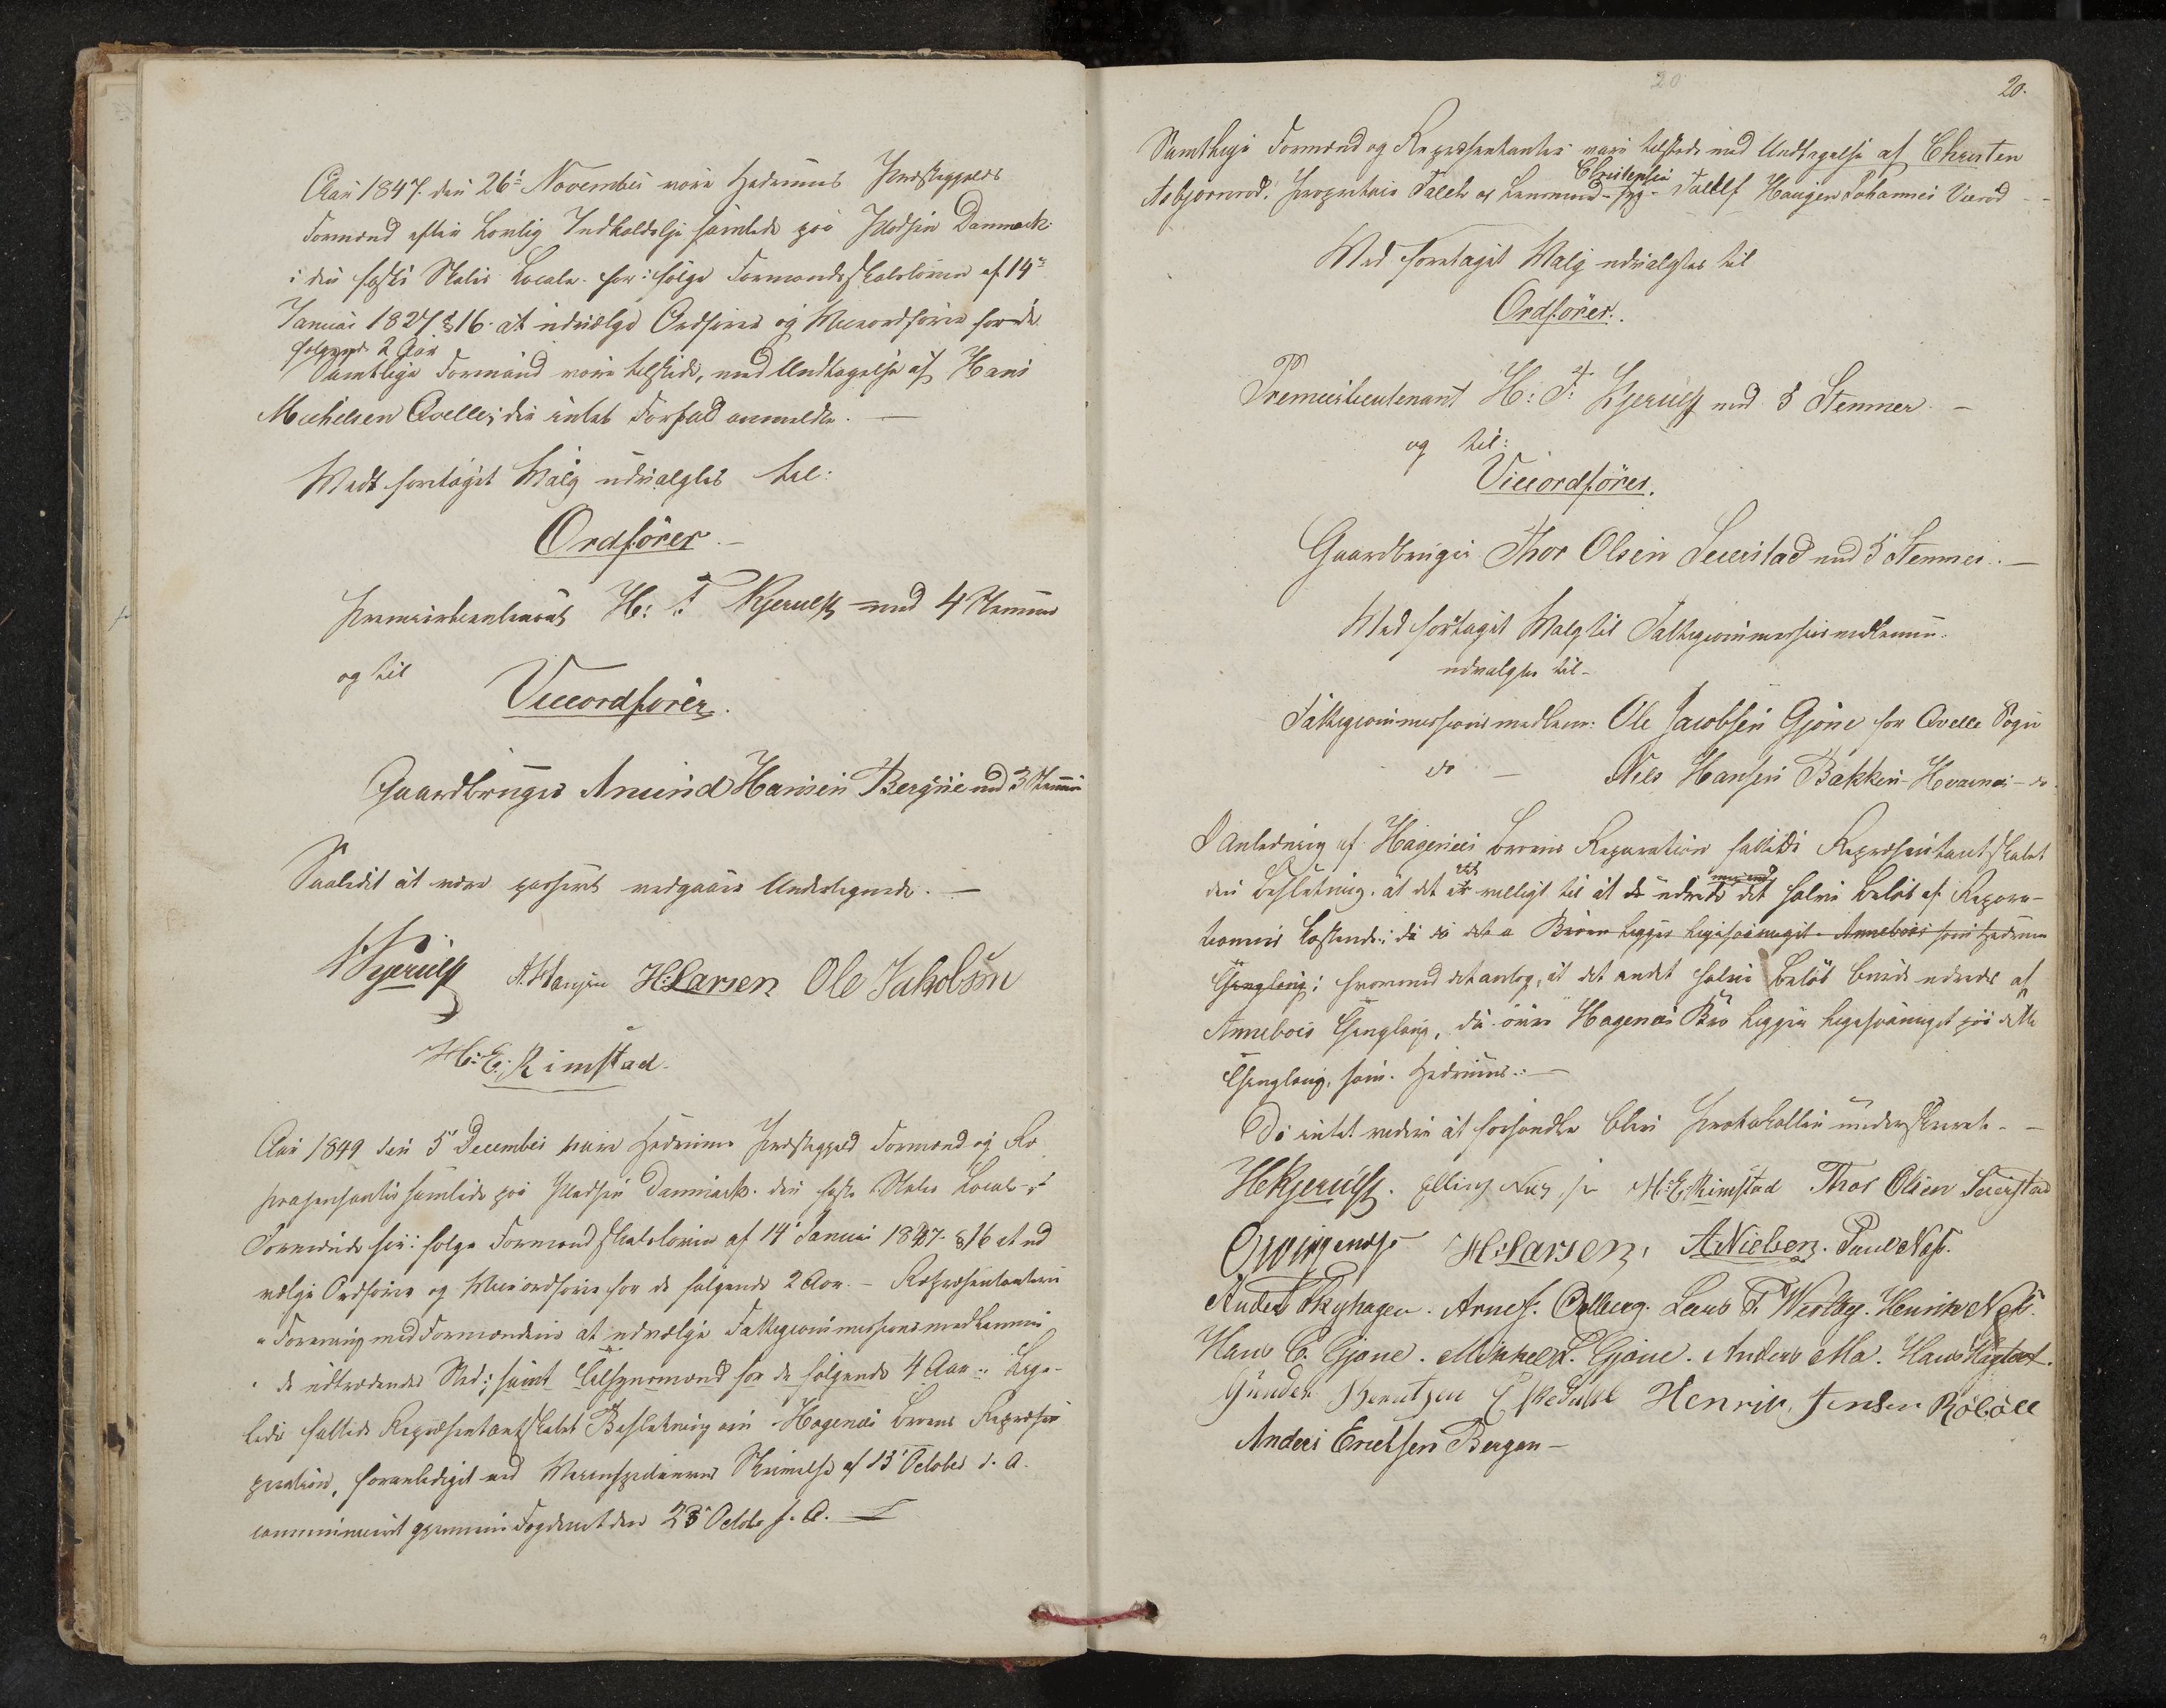 Aar 1847. den 26de November vare Hedrums Præstegjelds
Formænd efter Lovlig Indkaldelse samlede paa Pladsen Danmark
i den faste Skoles Locale for ifølge Formandskabsloven af 14de
Januar 1837 § 16 at udvælge Ordfører og Viceordfører for de
følgende 2 Aar
Samtlige Formænd vare tilstede, med Undtagelse af Hans
Michelsen Qvelle, der intet Forfald anmeldte. —
Ved foretaget Valg udvalgtes til:
Ordfører. —
Premierlieutenant H: F. Kjerulf med 4 Stemmer
og til
Viceordfører.
Gaardbruger Amund Hansen Bergene med 3 Stemmer
Saaledes at være passeret vedgaaer Undertegnede. —
Kjerulf A. Hansen H: Larsen Ole Jakobsen
H: E: Rimstad
Aar 1849 den 5te December vare Hedrums Præstegjeld Formænd og Re
præsentanter samlede paa Pladsen Danmark den faste Skoles Local
Formænd for ifølge Formandskabsloven af 14 Januar 1837 § 16 at ud
vælge Ordfører og Viceordfører for de følgende 2 Aar. — Repræsentanterne
i Forening med Formændene at udvælge Fattigcommissionsmedlemmer
i de udtrædendes Sted; samt Tilsynsmænd for de følgende 4 Aar: Lige-
ledes fattede Repræsentantskabet Beslutning om Hagenæs Broens
foranlediget ved Veiinspecteurens Skrivelse af 13 October d. A.
communiceret gjennem Fogderiet den 23 Octobr s. A.
20
20.
Samtlige Formænd og Repræsentanter vare tilstede med Undtagelse af Christen
Christensen
Asbjørnrød, Proprietair Falch og Lensmand Taalf Haugen Johannes Vierød
Ved foretaget Valg udvalgtes til
Ordfører.
Premierlieutenant H: F: Kjerulf med 8 Stemmer. —
og til:
Viceordfører.
Gaardbruger Thor Olsen Seierstad med 5 Stemmer. —
Ved foretaget Valg til Fattigcommissionsmedlemmer
udvalgtes til —
Fattigcommissionsmedlem: Ole Jacobsen Gjone for Qvelle Sogn
do — Nils Hansen Bakken Hvarnes — do
I Anledning af Hagenæs Broens Reparation fattede Repræsentantskabet
den Beslutning, at det er villigt til at udrede det halve Beløb af Repara-
tionens Kostende; da Broen ligger ligesaameget i Annebos som Hedrum
Thinglaug; hvorimod det antog, at det andet halve Beløb burde udredes af
Annebos Thinglaug, da Hagenæs Bro ligger ligesaameget paa dette
Thinglaug, som Hedrums. —
Da intet videre at forhandle blev Protokollen underskrevet. —
H Kjerulf. Elling H: E: Rimstad Thor Olsen Seierstad
H: Larsen, A Nielsen. Paul Næs.
Anders Skyhagen. Arne J. Odberg. Lars T. Vestby. Henrik Næs.
Hans C. Gjone. Mikkel L. Gjone. Anders Mo. Hans
Gunder Berntsen Henrik Jensen
Anders Erichsen Bergan —